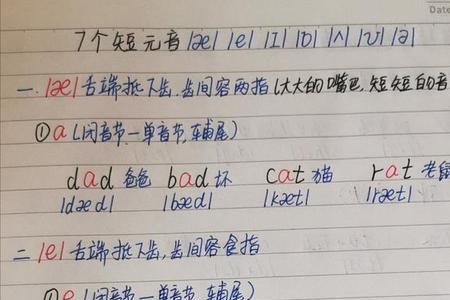 Date
7个短元音 /æ/ /e/ /I/ /ɒ/ /ʌ/ /ʊ/ /ə/
一. /æ/ 舌端抵下齿. 齿间容两指 (大大的嘴巴, 短短的音
① a (闭音节—单音节, 辅尾)
dad 爸爸 bad 坏 cat 猫 rat 老鼠
/dæd/ /bæd/ /kæt/ /ræt/
二 /e/ 舌端抵下齿, 齿间容食指
① e (闭音节—单音节, 辅尾)